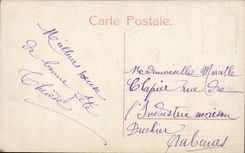 Carte Postale.
Meilleurs voeux
de bonne fête
Mademoiselle Maralle
Clapier rue de
l'Industrie maison
Duchier
Aubenas